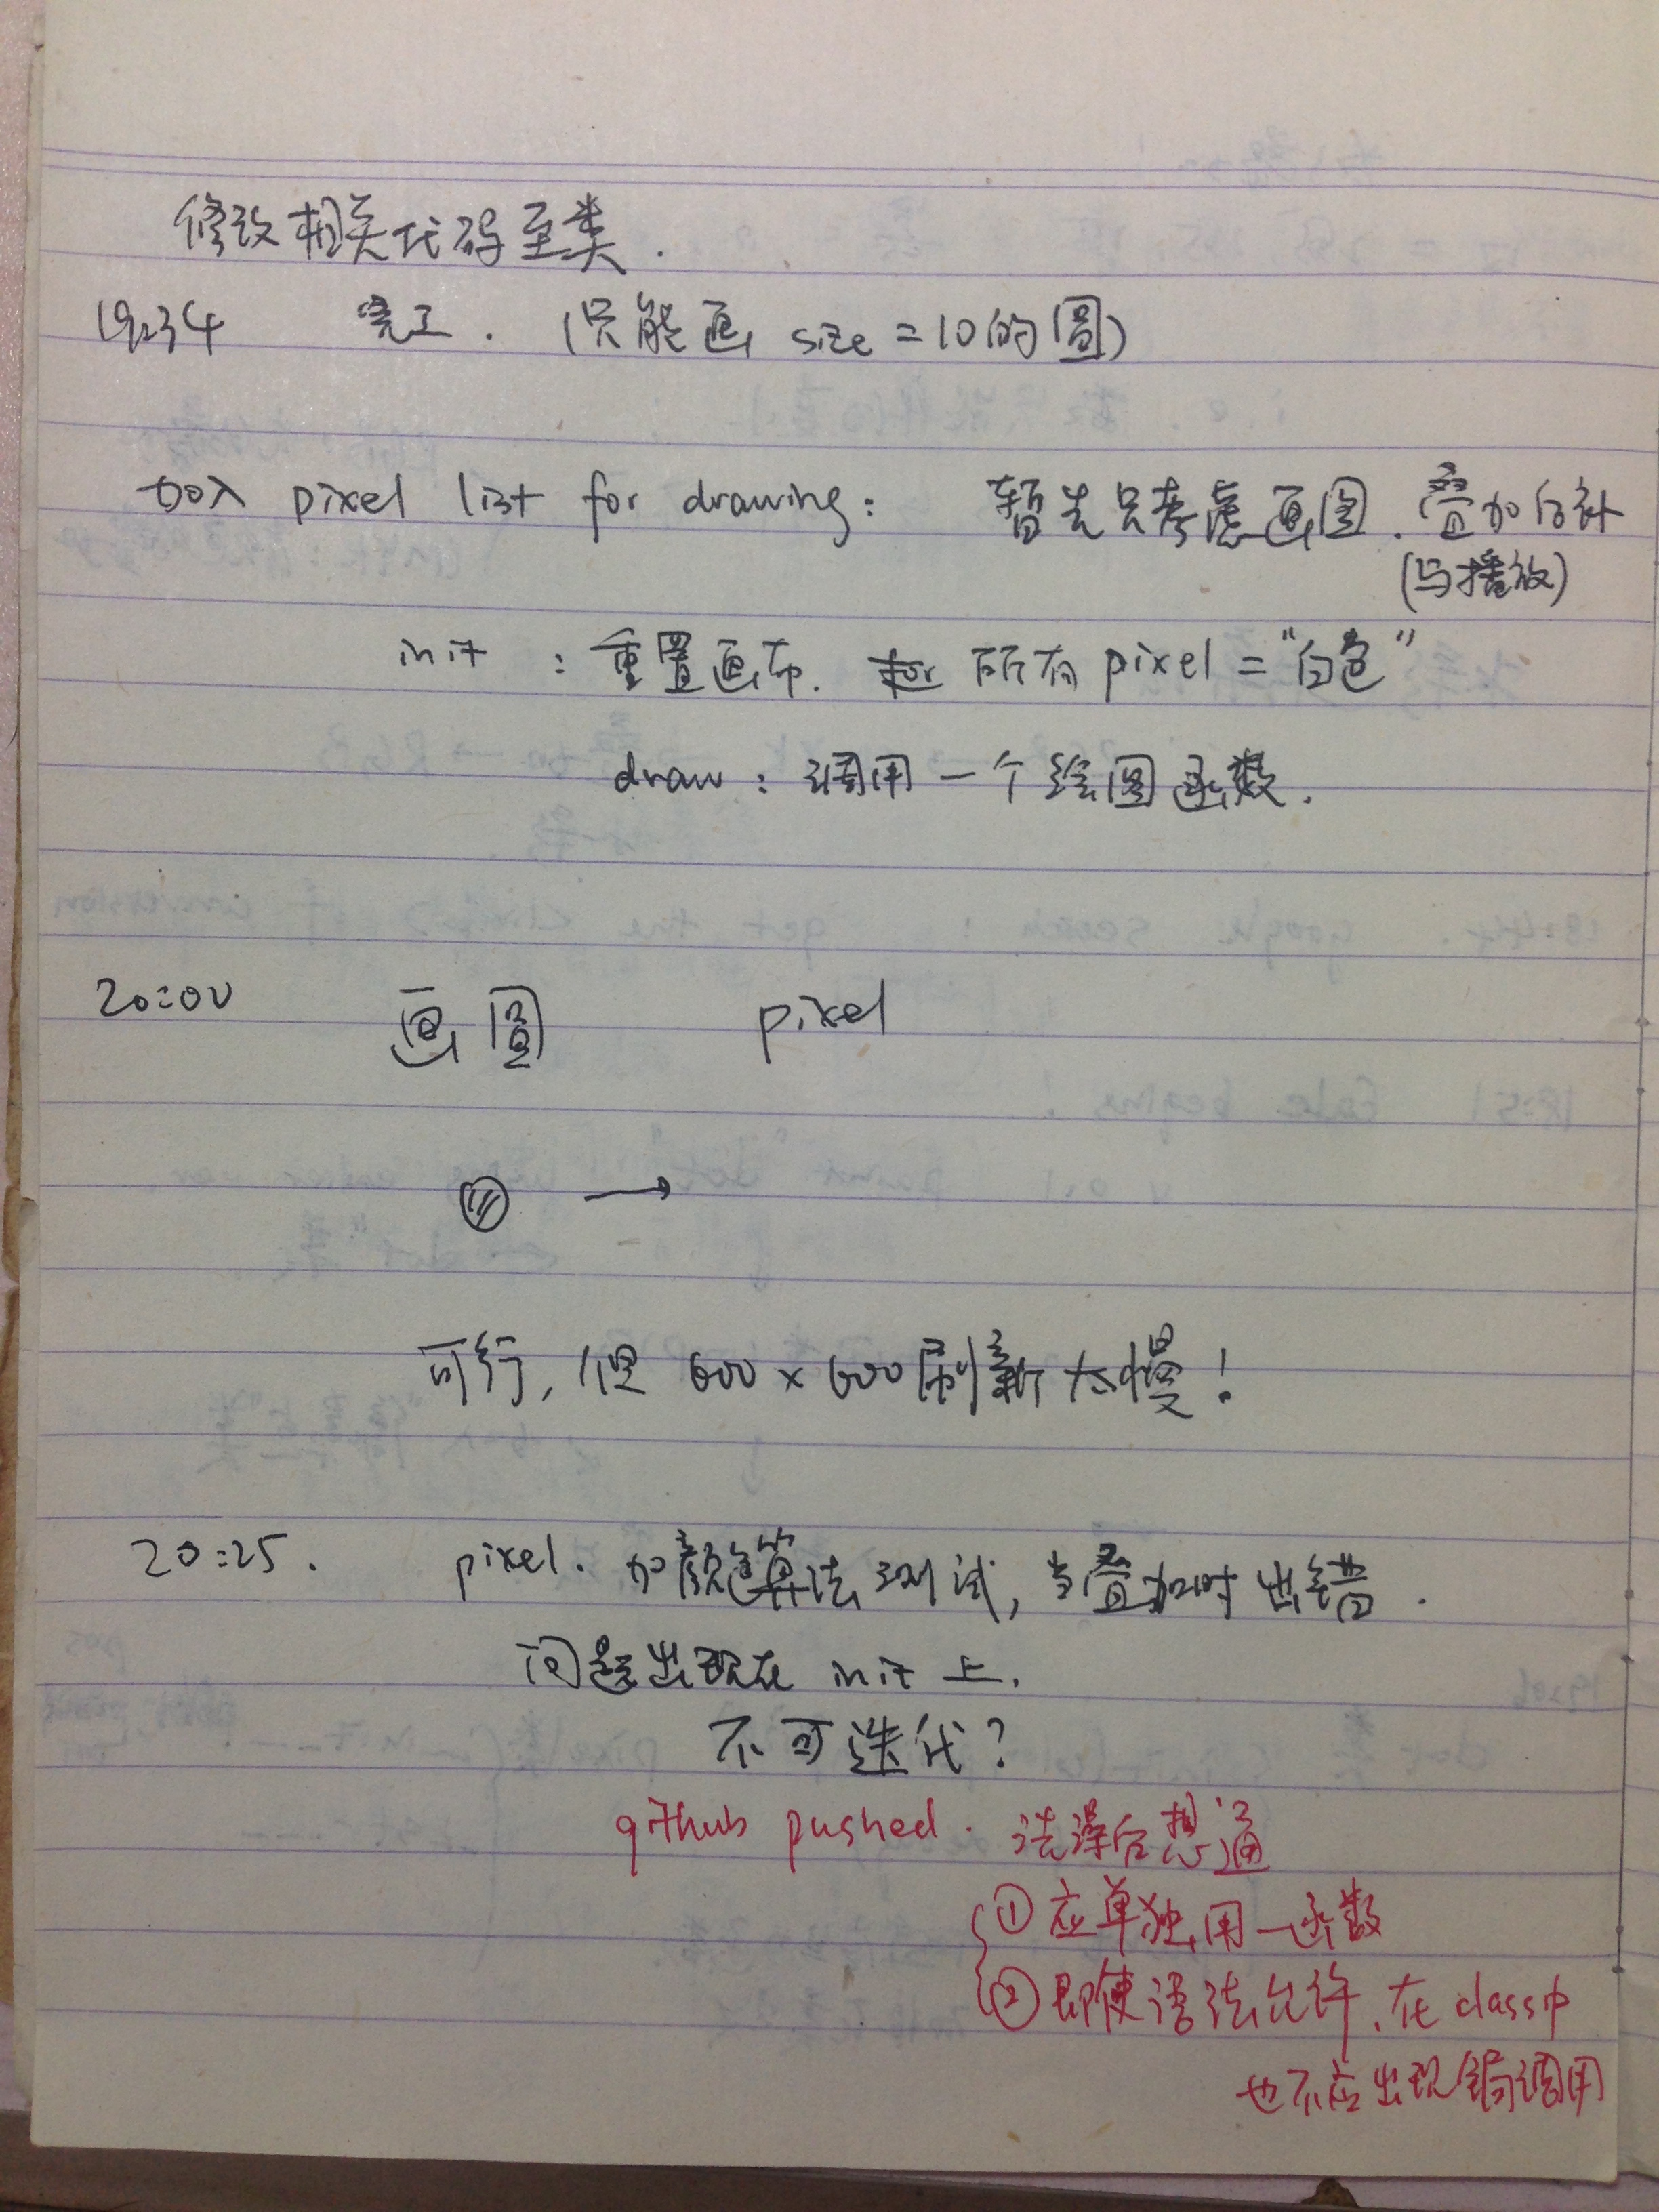 修改相关代码至类.
19:34 完工. (只能画 size = 10的圆)
加入 pixel list for drawing: 暂先只考虑画图. 叠加后补
(与播放)
init : 重置画布. for 所有 pixel = "白色"
draw : 调用一个绘图函数.
20:00 画圆 pixel
可行, 但 600 x 600 刷新太慢!
20:25. pixel. 加颜色算法测试, 当叠加时出错.
问题出现在 init 上.
不可迭代?
github pushed. 洗澡后想通
① 应单独用一函数
② 即使语法允许, 在class中
也不应出现 调用